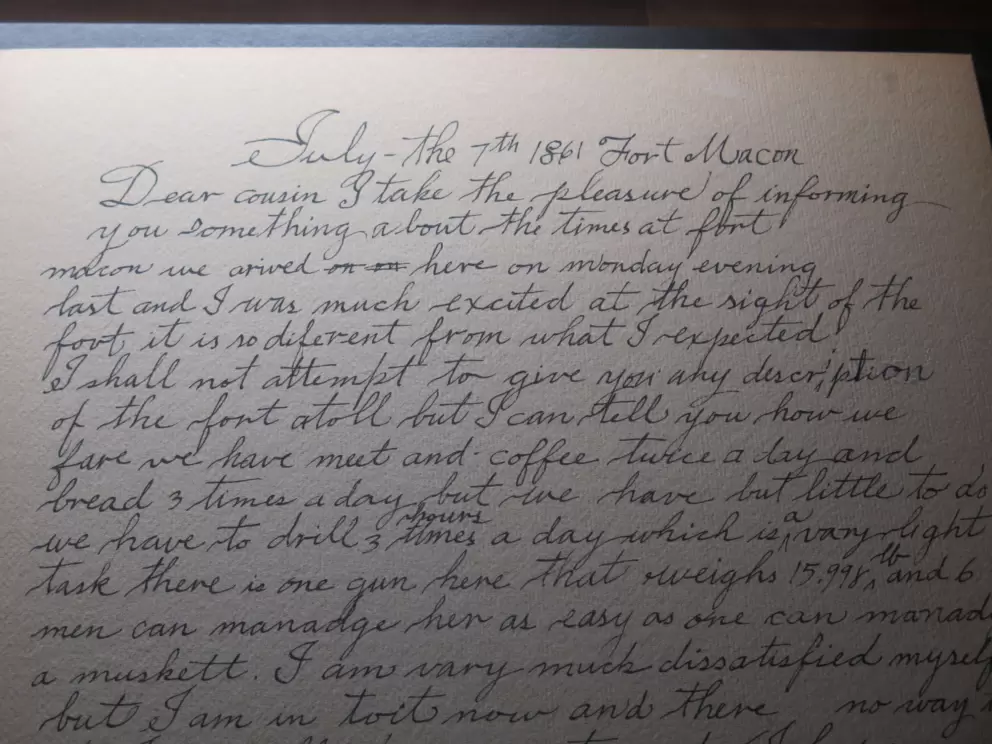 July - the 7th 1861 Fort Macon
Dear cousin I take the pleasure of informing
you something about the times at fort
macon we arived on on here on monday evening
last and I was much excited at the sight of the
fort it is so diferent from what I expected
I shall not attempt to give you any description
of the fort atoll but I can tell you how we
fare we have meet and coffee twice a day and
bread 3 times a day but we have but little to do
we have to drill 3 times hours a day which is a vary light
task there is one gun here that weighs 15.998 lb and 6
men can manadge her as easy as one can manad
a muskett. I am vary much dissatisfied myself
but I am in toit now and there no way